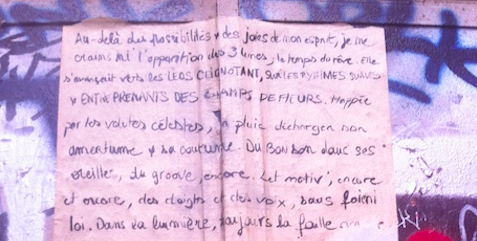 Au-delà des possibilités & des joies de mon esprit, je me
crains ni l'opposition des 3 lunes, le temps du rêve. Elle
vers les LEDS CLIGNOTANT, SUR LES RYTHMES SUAVES
& ENTREPRENANTS DES CHAMPS DE FLEURS. Happée
par les volutes célestes, la pluie décharge son
amertume & sa courtume. Du Bonbon dans ses
oreilles, du groove, encore. Leit motiv, encore
et encore, des doigts et des voix, sans foi ni
loi. Dans la lumière, toujours la faille